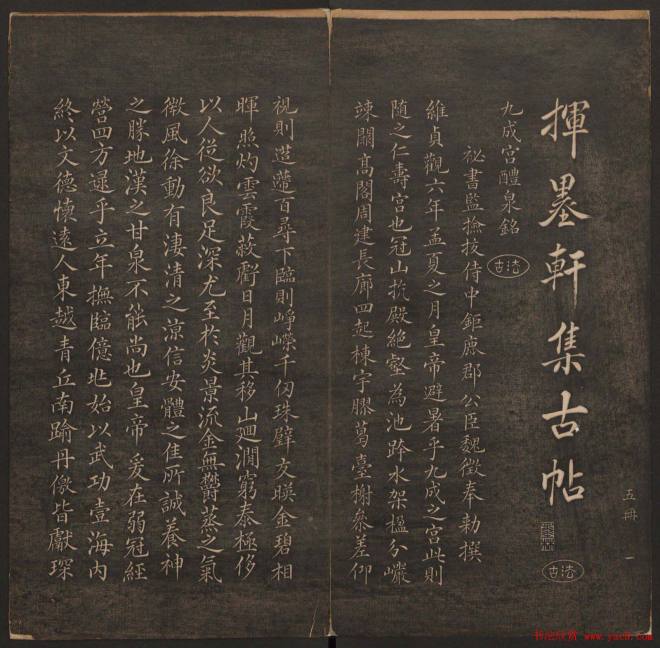 五冊 一
揮墨軒集古帖
法古
九成宮醴泉銘
法古
祕書監撿挍侍中鉅鹿郡公臣魏徵奉勅撰
維貞觀六年孟夏之月皇帝避暑乎九成之宮此則
隨之仁壽宮也冠山抗殿絕壑為池跨水架楹分巖
竦闕高閣周建長廊四起棟宇膠葛臺榭參差仰
視則迢遰百尋下臨則崢嶸千仞珠璧交暎金碧相
暉照灼雲霞蔽虧日月觀其移山迴澗窮泰極侈
以人從欲良足深尤至於炎景流金無鬱蒸之氣
微風徐動有淒清之涼信安體之佳所誠養神
之勝地漢之甘泉不能尚也皇帝爰在弱冠經
營四方逮乎立年撫臨億兆始以武功壹海內
終以文德懷遠人東越青丘南踰丹徼皆獻琛
书法欣赏 www.yac8.com